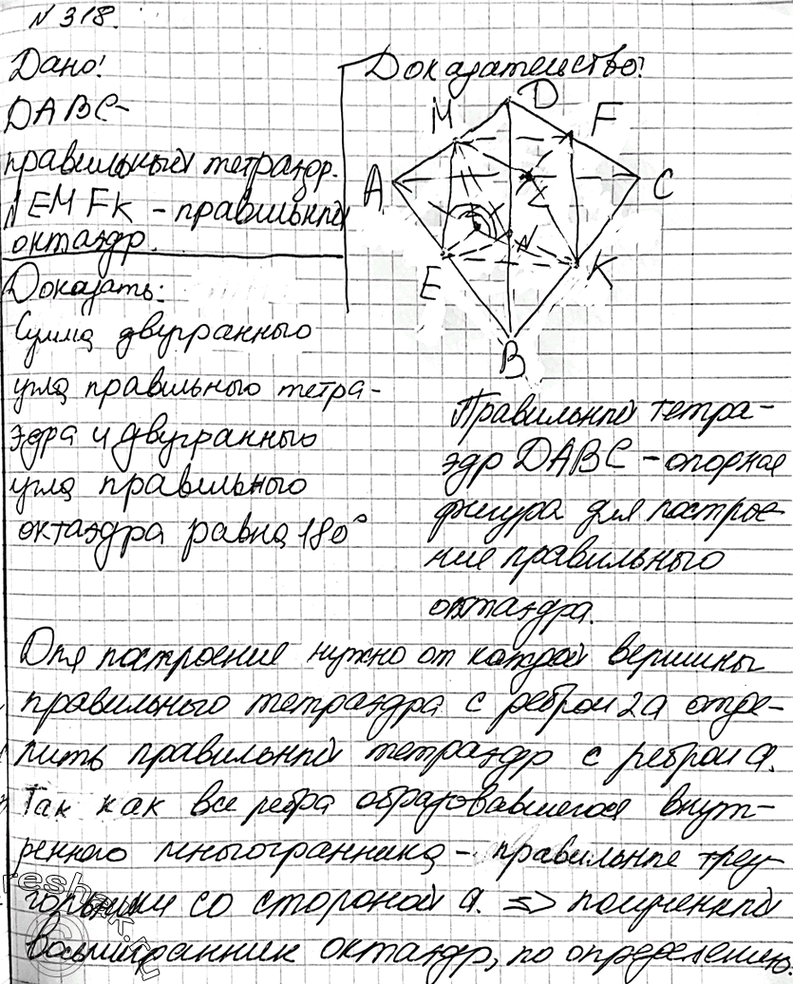 №318.
Дано:
DABC-
правильный тетраэдр.
NEMFK - правильный
октаэдр.
Доказать:
Сумма двугранного
угла правильного тетра-
эдра и двугранного
угла правильного
октаэдра равна 180°
Доказательство:
D
M
F
A
C
Z
N
E
K
B
Правильный тетра-
эдр DABC - опорная
фигура для построе-
ние правильного
октаэдра.
Для построение нужно от каждой вершины
правильного тетраэдра с ребром 2a отде-
лить правильный тетраэдр с ребром a.
Так как все ребра образовавшегося внут-
реннего многогранника - правильные треу-
гольники со стороной a. => полученный
восьмигранник октаэдр, по определению.
reshak.ru